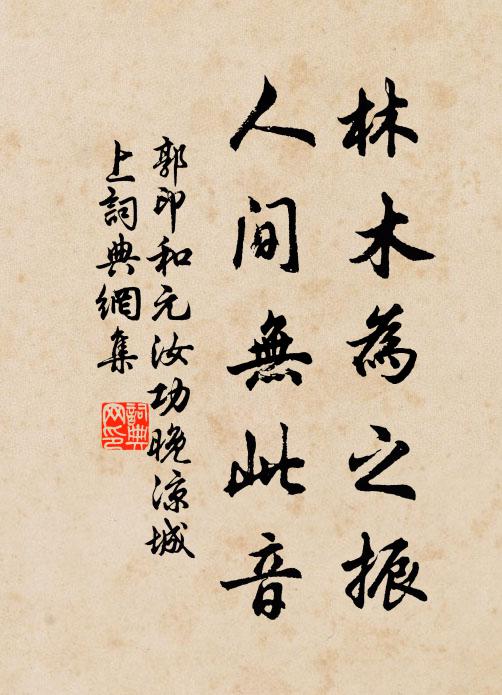 林木為之振
人间無此音
郭印和元汝功晚凉城
上詞典網集
詞典
网印